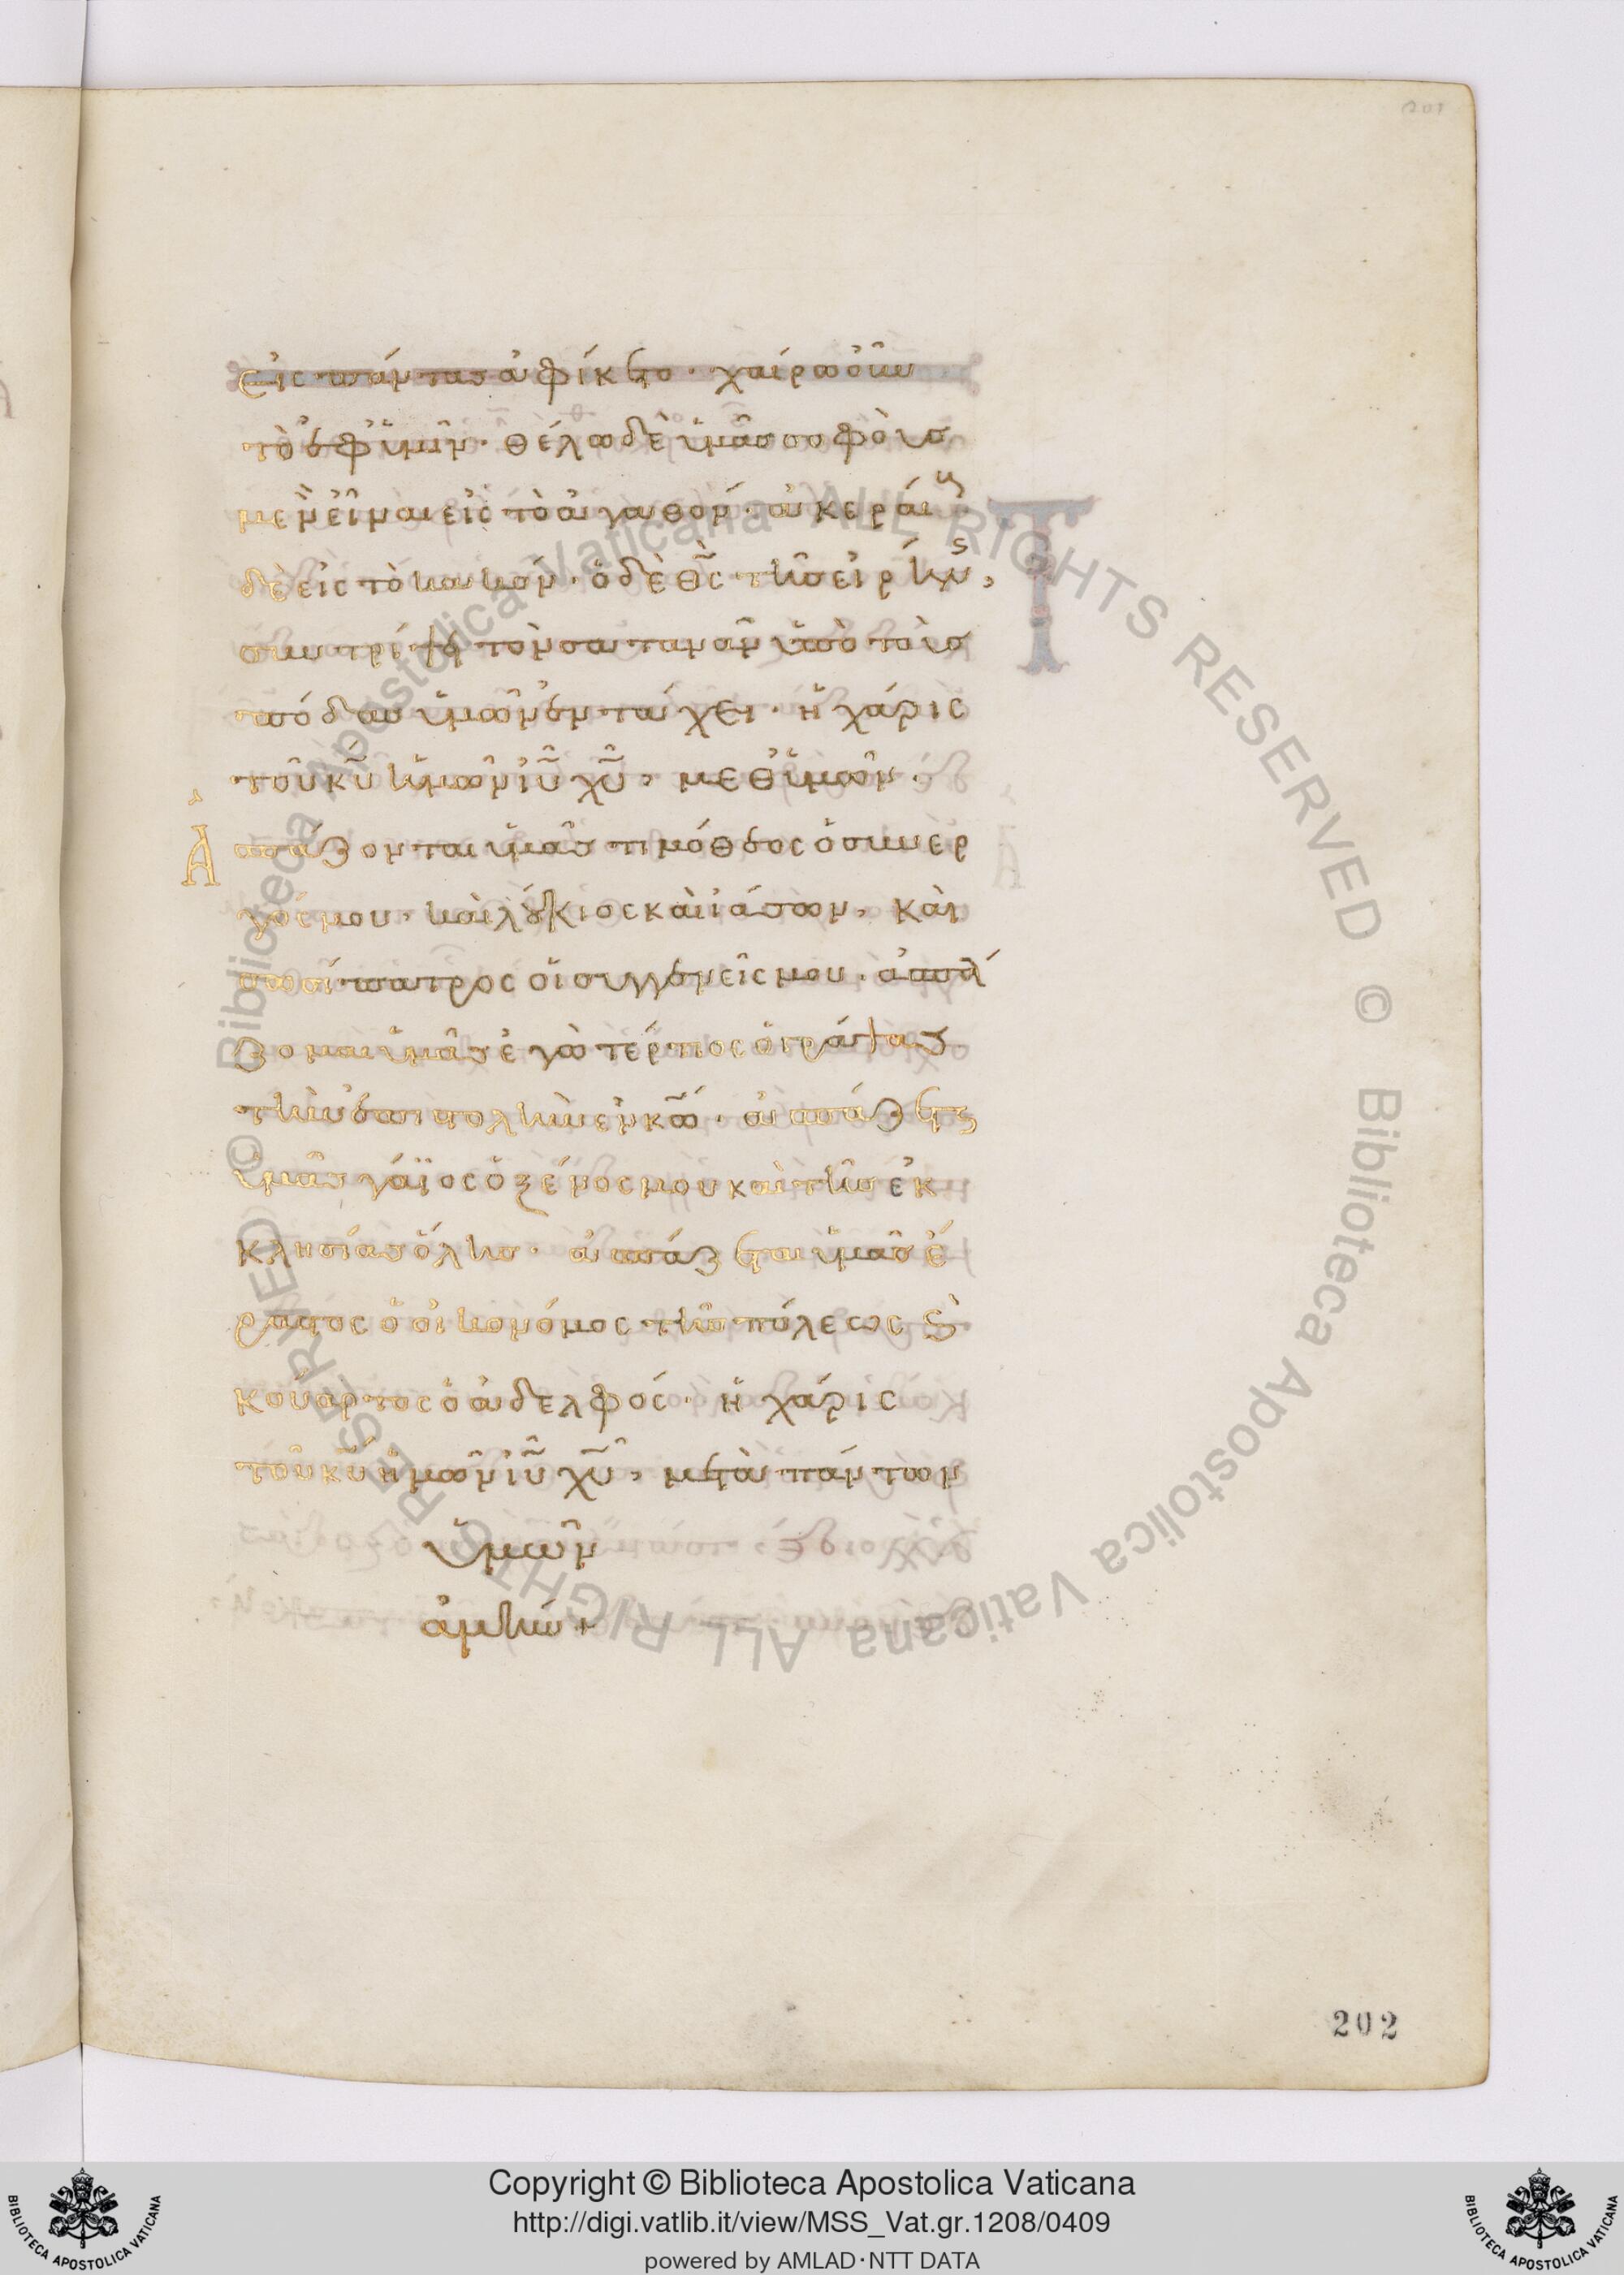 εἰς πάντας ἀφίκετο· χαίρω οὖν
τὸ ἐφ' ὑμῖν· θέλω δὲ ὑμᾶς σοφοὺς
μὲν εἶναι εἰς τὸ ἀγαθόν· ἀκεραίους
δὲ εἰς τὸ κακόν· ὁ δὲ θς τῆς εἰρήνης,
συντρίψει τὸν σατανᾶν ὑπὸ τοὺς
πόδας ὑμῶν ἐν τάχει· ἡ χάρις
τοῦ κυ ἡμῶν ιυ χυ, μεθ' ὑμῶν·
Ἀσπάζονται ὑμᾶς τιμόθεος ὁ συνερ
γός μου· καὶ λούκιος καὶ ἰάσων, καὶ
σωσίπατρος οἱ συγγενεῖς μου· ἀσπά
ζομαι ὑμᾶς ἐγὼ τέρτιος ὁ γράψας
τὴν ἐπιστολὴν ἐν κω· ἀσπάζεται
ὑμᾶς γάϊος ὁ ξένος μου καὶ τῆς ἐκ
κλησίας ὅλης· ἀσπάζεται ὑμᾶς ἔ
ραστος ὁ οἰκονόμος τῆς πόλεως καὶ
κούαρτος ὁ ἀδελφός· ἡ χάρις
τοῦ κυ ἡμῶν ιυ χυ, μετὰ πάντων
ὑμῶν
ἀμήν +
202
© Biblioteca Apostolica Vaticana ALL RIGHTS RESERVED © Biblioteca Apostolica Vaticana ALL RIGHTS RESERVED
Copyright © Biblioteca Apostolica Vaticana
http://digi.vatlib.it/view/MSS_Vat.gr.1208/0409
powered by AMLAD·NTT DATA
BIBLIOTECA APOSTOLICA VATICANA
BIBLIOTECA APOSTOLICA VATICANA